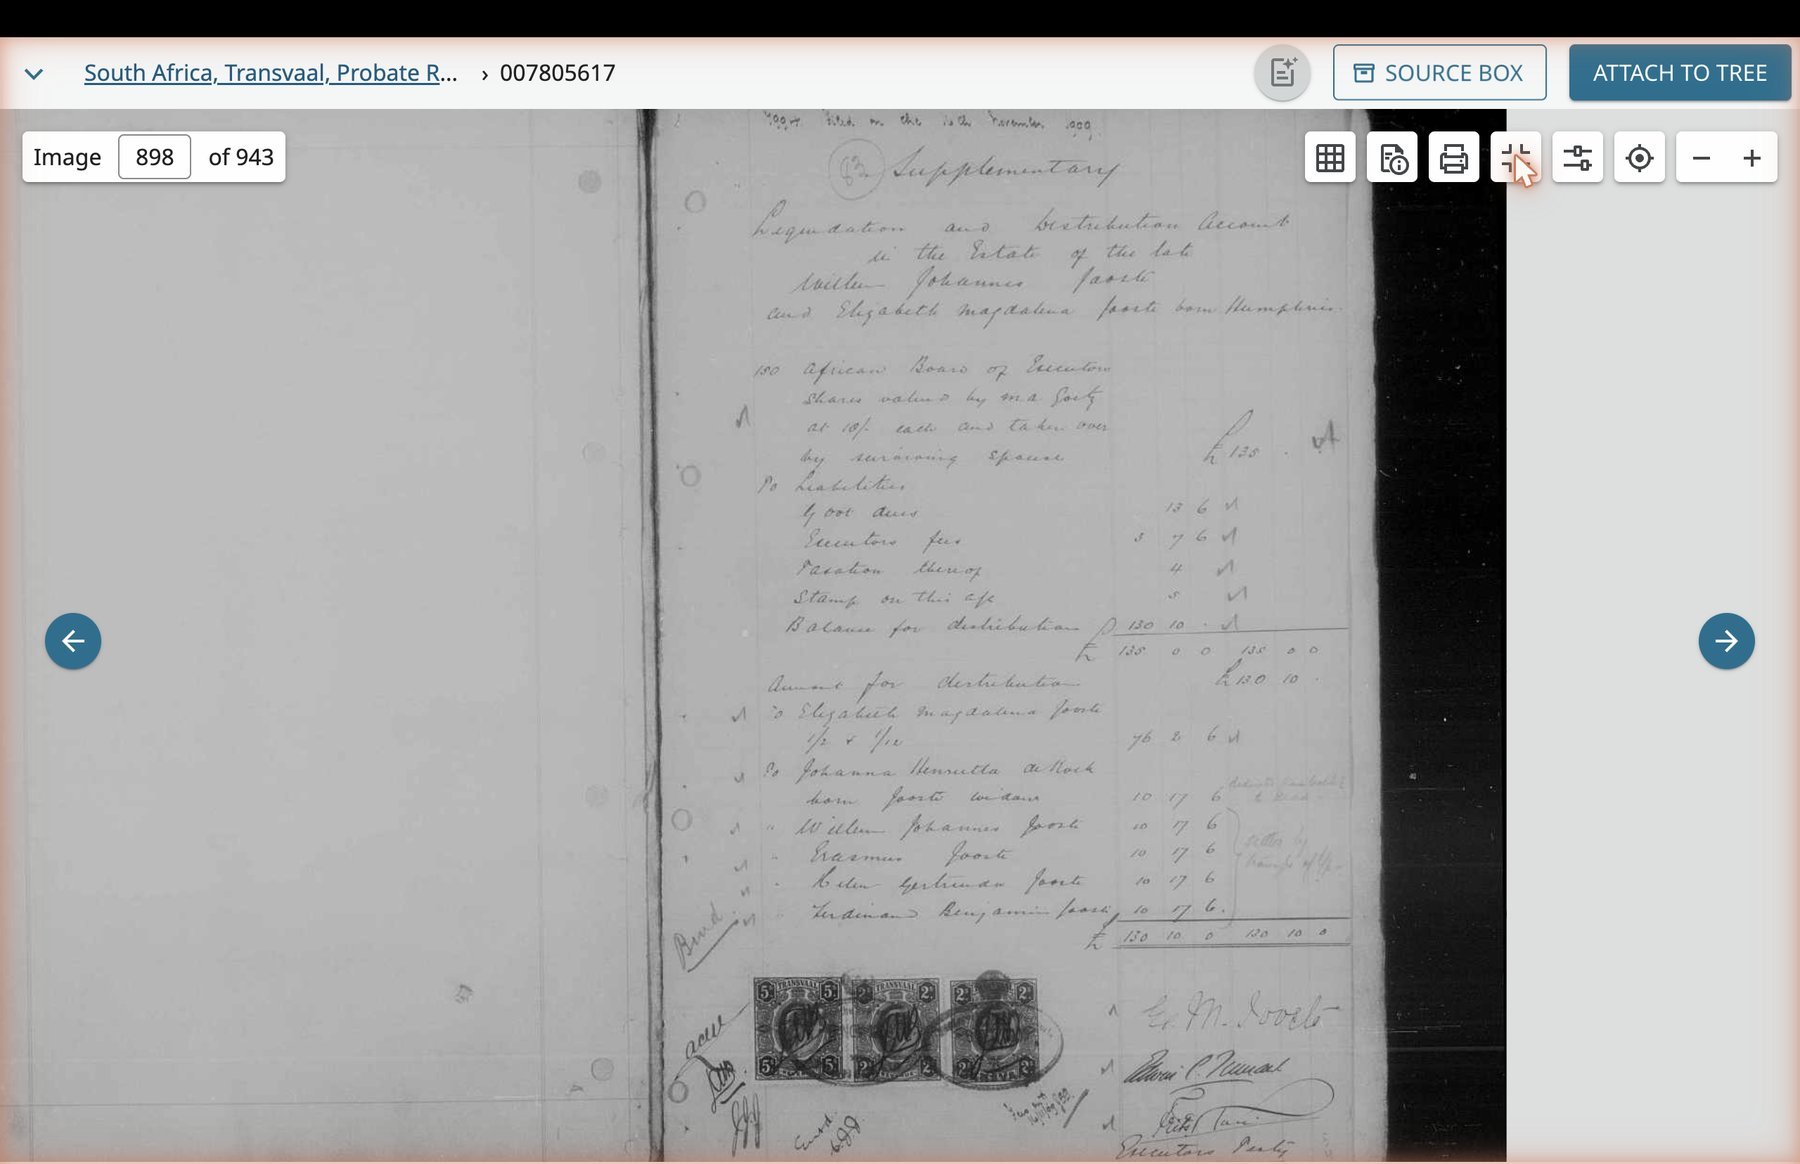 South Africa, Transvaal, Probate R... › 007805617
SOURCE BOX
ATTACH TO TREE
Image 898 of 943
filed on the 16th November 1909
83 Supplementary
Liquidation and Distribution Account
in the Estate of the late
Willem Johannes Jooste
and Elizabeth Magdalena Jooste born Humphries.
150 African Board of Executors
shares valued by
at 18/- each and taken over
by surviving spouse £ 135 -
To Liabilities
Govt dues 13 6
Executors fees 3 7 6
Taxation thereof 4
Stamp on this a/c 5
Balance for distribution 130 10 -
£ 135 0 0 135 0 0
Amount for distribution £ 130 10 -
To Elizabeth Magdalena Jooste
1/2 & 1/12 76 2 6
To Johanna Henrietta de Kock
born Jooste widow 10 17 6
" Willem Johannes Jooste 10 17 6
" Erasmus Jooste 10 17 6
" Gertruida Jooste 10 17 6
" Ferdinand Benjamin Jooste 10 17 6
£ 130 10 0 130 10 0
TRANSVAAL
5/ 5/ 2/ 2/ 2/ 2/
E. M. Jooste
Executors